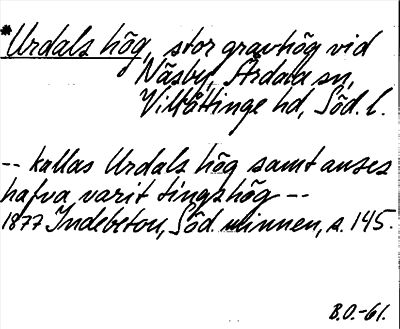 *Urdals hög, stor gravhög vid
Näsby, Årdala sn,
Villåttinge hd, Söd. l.
-- kallas Urdals hög samt anses
hafva varit tingshög --
1877 Indebetou, Söd. minnen, s. 145.
B.O.-61.